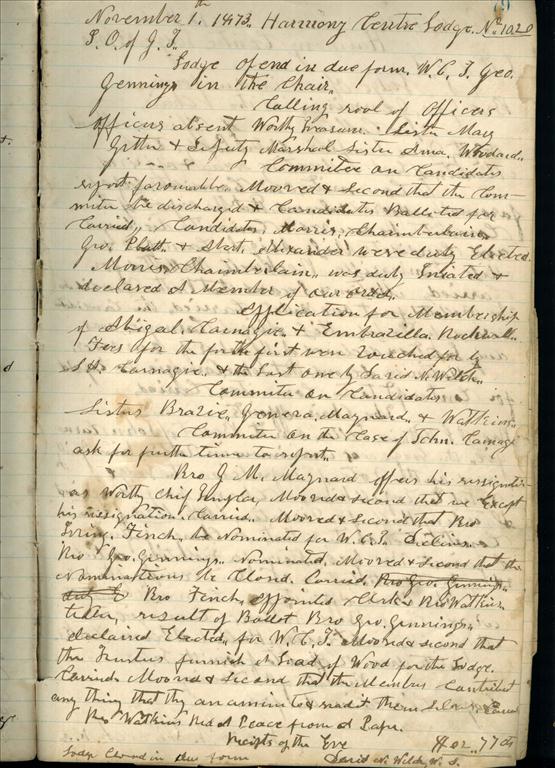 November 1th, 1873. Harmony Centre Lodge No 1020
I. O. of G. T.
Lodge opend in due form, W. C. T. Geo.
Gennings in the Chair,
Calling rool of Officers
officers absent Worthy Treasurer Sister May
& Deputy Marshal Sister Ama Woodard
Committee on Candidates
report favourable. Mooved & Second that the Com-
mittee be discharged & Candidates Balloted for
Carried, Candidates Morris, Chamberlain
Geo. Platt. & Alexander were duly Elected.
Morris Chamberlain was duly Iniated &
declared a Member of our order,
Application for Membership
of Abigal Carnagie & Embrazilla Rockwell
Fees for the first were vouched for by
Carnagie & the Last one by David N. Welch
Committee on Candidates
Sisters Brazee, Genera Maynard & Watkins
Committee on the Case of John Carnagie
ask for furth time to report.
Bro G. M. Maynard offers his resignation
as Worthy Chif Templar, Mooved & Second that we Except
his resignation, Carried. Mooved & Second that Bro
Irving Finch be Nominated for W. C. T. Declines
Bro Geo. Gennings Nominated. Mooved & Second that the
Nominations be Closed. Carried, Bro Geo. Gennings
Bro Finch, appointed Clerk & Bro Watkins
teller, result of Ballot Bro Geo. Gennings
declaired Elected, for W. C. T. Mooved & second that
the Trustees furnish A Load of Wood for the Lodge.
Carried Mooved & Second that the Members Contribut
any thing that they are a mind to & read it them selves Carried
Bro Watkins Red A Peace from a Paper.
Receipts of the Eve $02.77 cts
Lodge Closed in due form David N. Welch W. S.